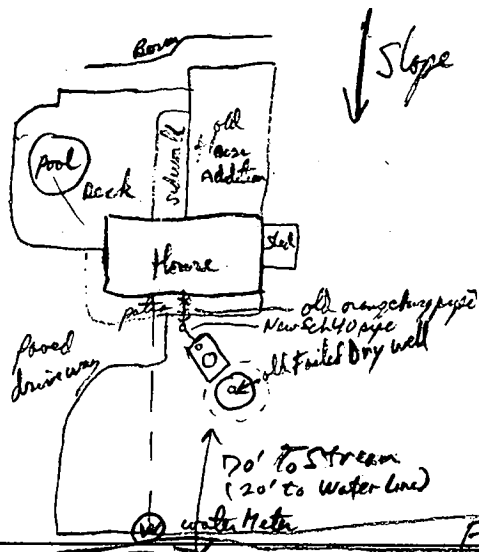 Slope
old
Addition
Pool
Deck
sidewalk
House
Shed
patio
old orangeburg pipe
New Sch 40 pipe
old Failed Dry well
Paved
driveway
70' To Stream
(20' to Water line)
W
water Meter
F